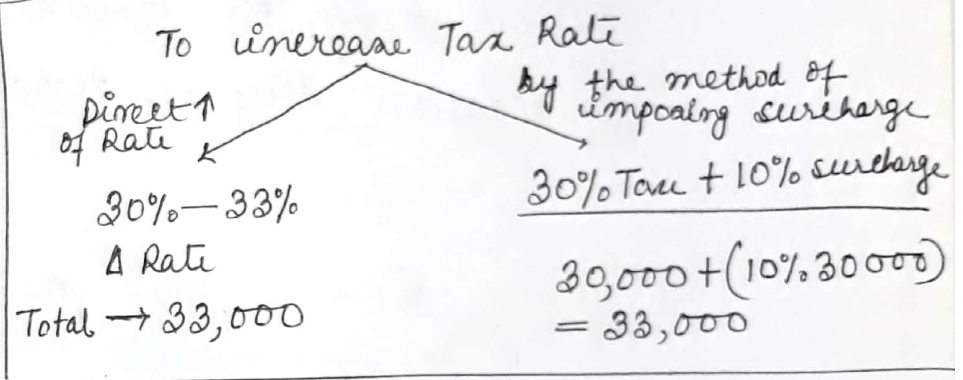 To increase Tax Rate
Direct ↑
of Rate
30% — 33%
Δ Rate
Total → 33,000
by the method of
imposing surcharge
30% Tax + 10% surcharge
30,000 + (10% 30000)
= 33,000